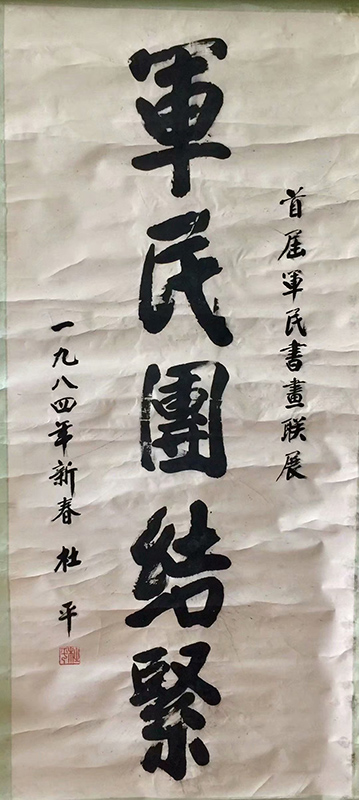 首届軍民書畫联展
軍民團结緊
一九八四年新春 杜平